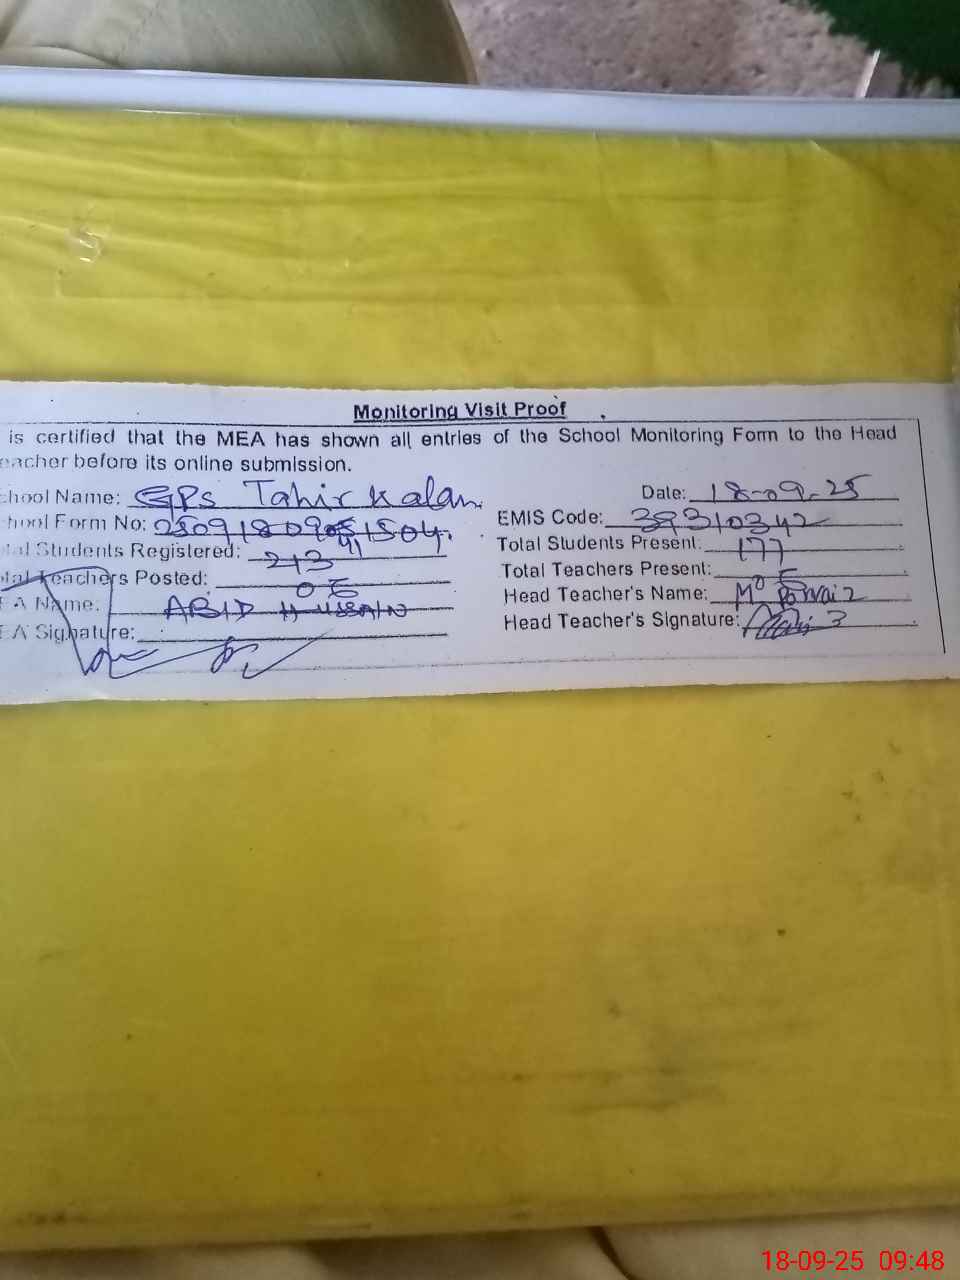 Monitoring Visit Proof
is certified that the MEA has shown all entries of the School Monitoring Form to the Head
eacher before its online submission.
chool Name: GPS Tahir Kalan. Date: 18-09-25
chool Form No: EMIS Code: 39310342
tal Students Registered: 213 Total Students Present: 177
tal Teachers Posted: 05 Total Teachers Present: 5
EA Name: ABID HUSSAIN Head Teacher's Name: M° Parvaiz
EA Signature: Head Teacher's Signature:
18-09-25 09:48